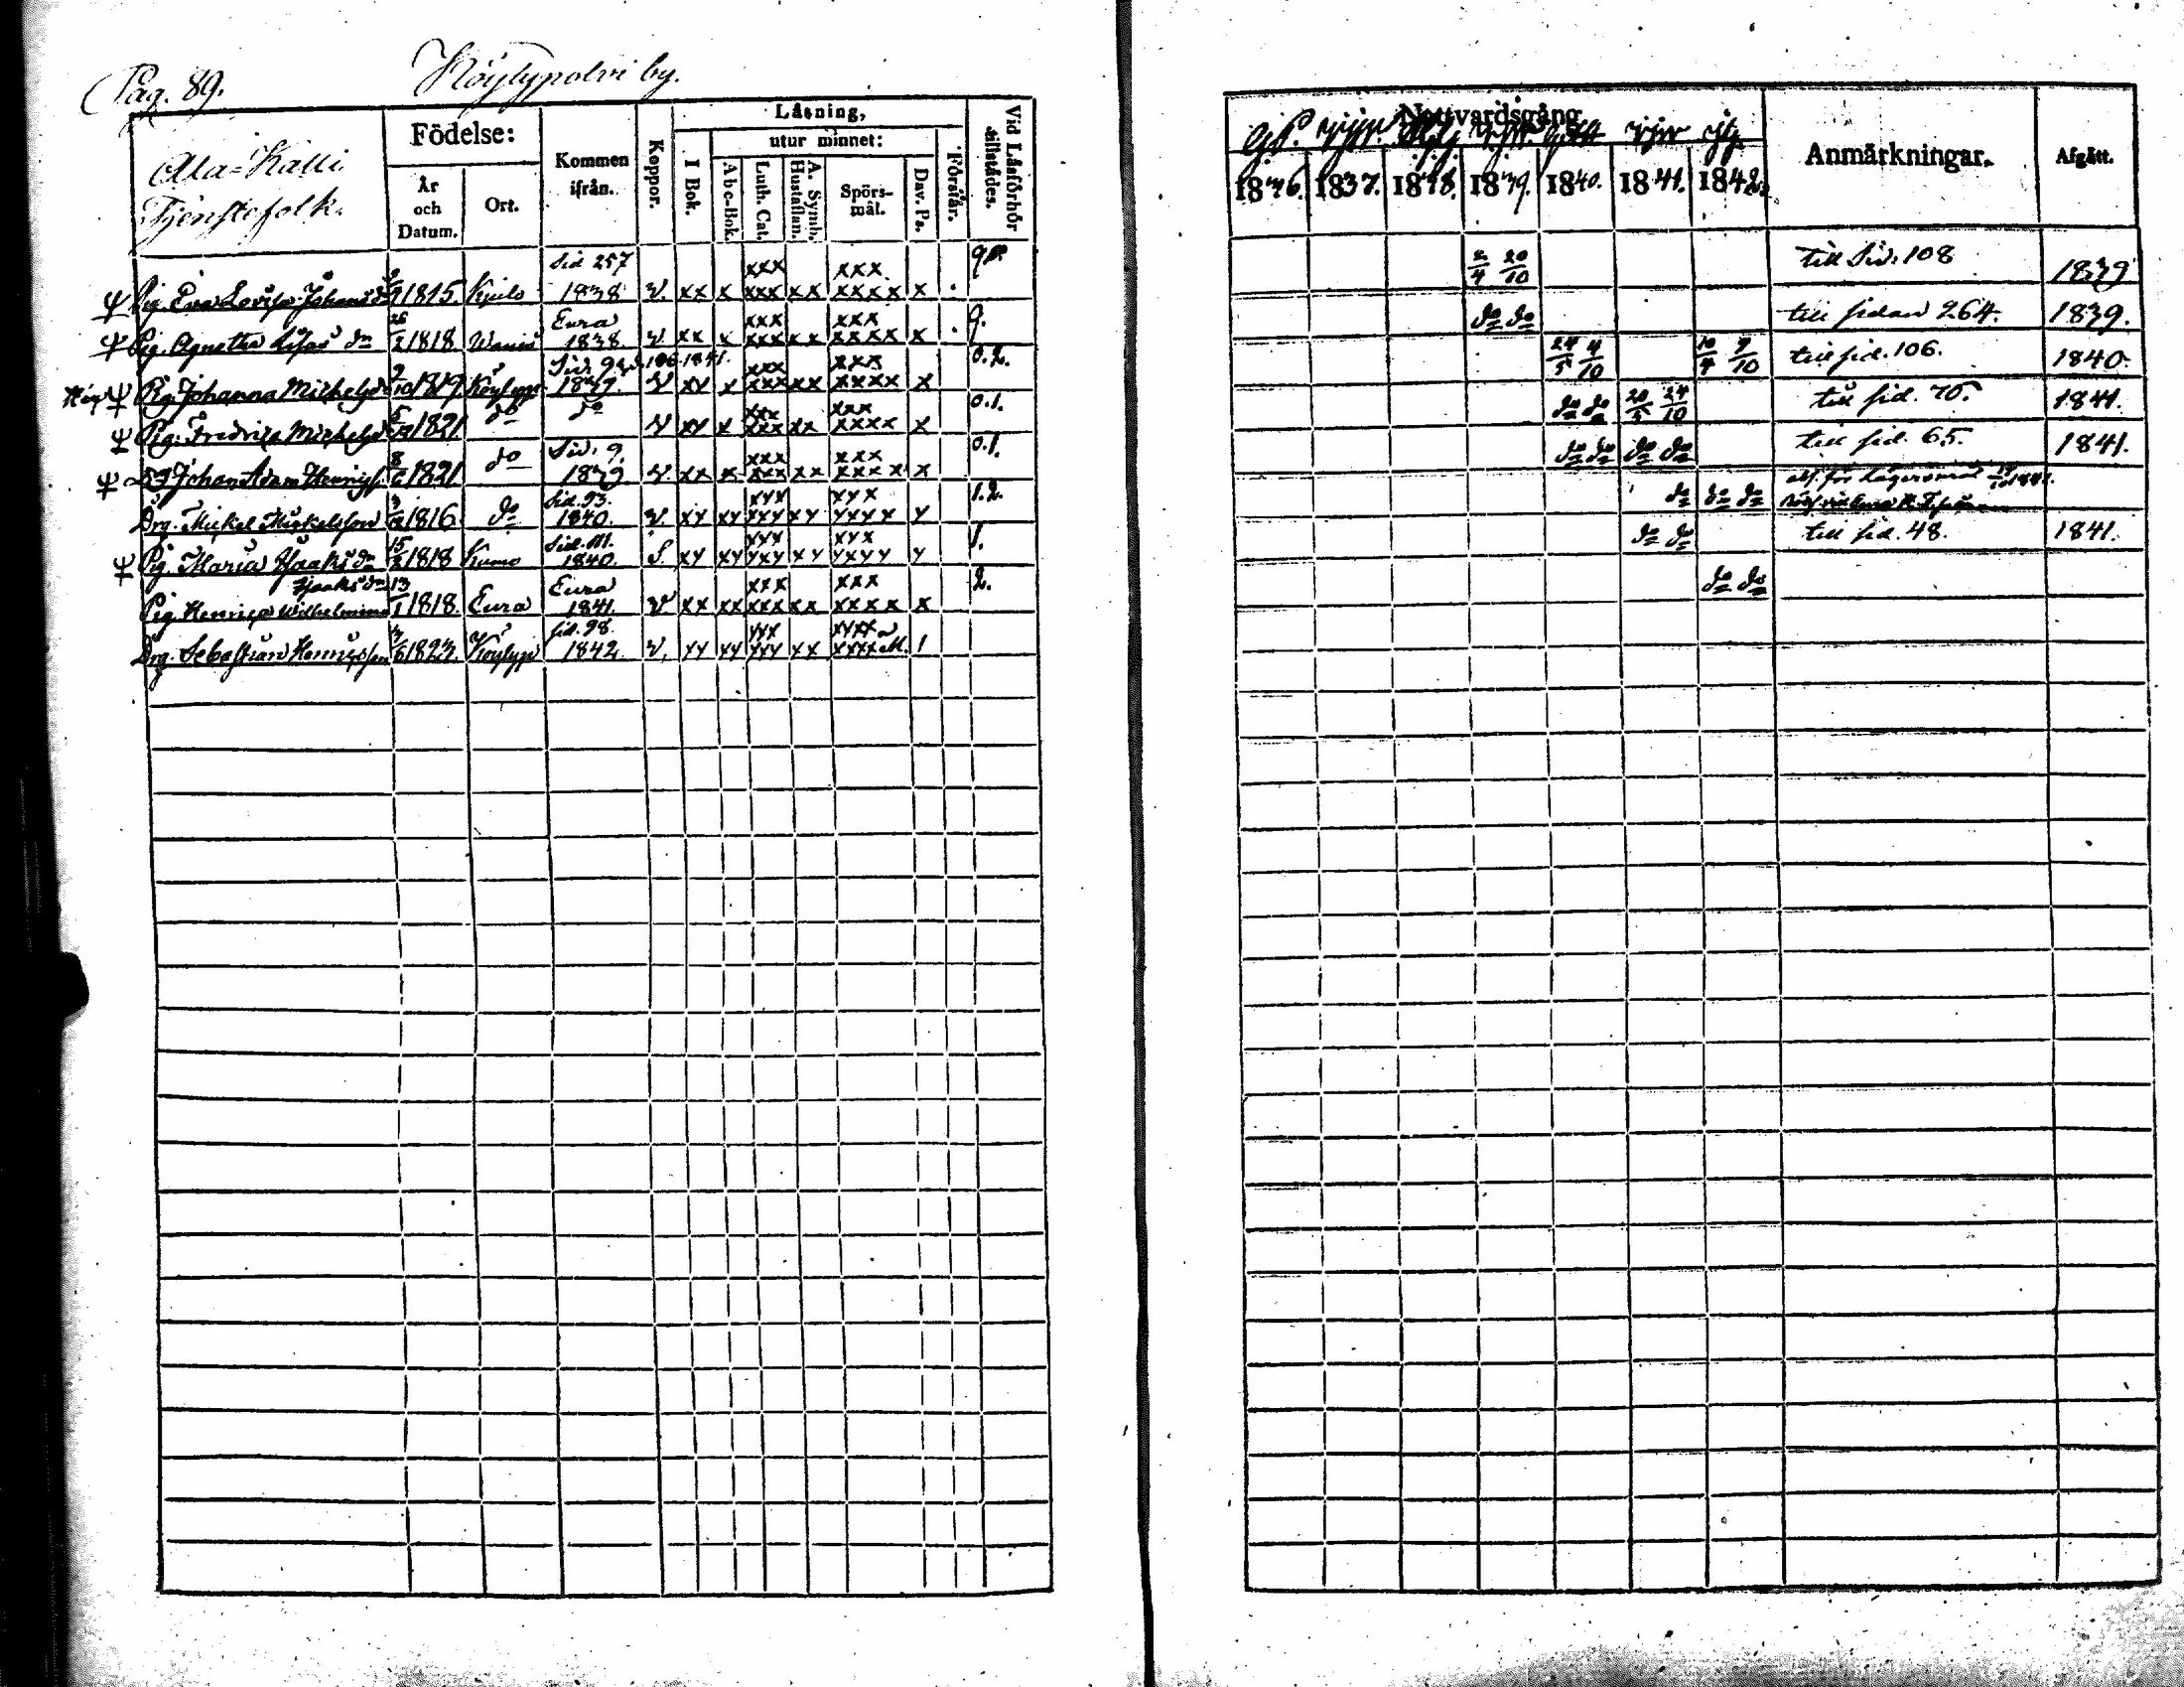 Pag. 89. Köylypolvi by.
Ala-Kalli
Tjenstefolk.
Födelse:
År och Datum.
Ort.
Kommen ifrån.
Koppor.
Läsning,
I Bok.
utur minnet:
Abc-Bok.
Luth. Cat.
A. Symb. Hustaflan.
Spörs-mål.
Dav. Ps.
Förstår.
Vid Läsförhör tillstädes.
Nattvardsgång
1836. 1837. 1838. 1839. 1840. 1841. 1842.
Anmärkningar.
Afgått.
Sid 257 xxx xxx 9.
Pig. Eva Lovisa Johans dr 1815. Kjulo 1838 v. xx x xxx xx xxxx x 2/4 20/10 till Sid. 108 1839
Eura xxx xxx 9.
Pig. Agnetha Lisas dr 26/2 1818 1838 v xx x xxx xx xxxx x do do till sidan 264. 1839.
Sid. 9 106. 1841. xxx xxx 0.2.
Pig. Johanna Michelsdr 9/10 1819 Köylyp 1839. v xx x xxx xx xxxx x 24/5 4/10 10/4 9/10 till sid. 106. 1840.
xxx xxx 0.1.
Pig. Fredrica Michelsdr 1821 do do v xx x xxx xx xxxx x do do 20/5 24/10 till sid. 70. 1841.
Sid. 9. xxx xxx 0.1.
Johan Adam Henriss. 1821 do 1839 v. xx x xxx xx xxxx x do do do do till sid. 65. 1841.
Sid. 93. xxx xxx 1.2.
Drg. Mickel Mickelsson 1816. do 1840. v. xx xx xxx xx xxxx x do do do
Sid. 111. xxx xxx 1.
Pig. Maria Isaks dr 15 1818 Kumo 1840. S. xx xx xxx xx xxxx x do do till sid. 48. 1841.
Isaks dr 13/1 Eura xxx xxx 2.
Pig. Henrica Wilhelmina 1818. Eura 1841. v xx xx xxx xx xxxx x do do
sid. 98. xxx xxxx
Drg. Sebastian Henriksson 1823. Köylyp 1842. v. xx xx xxx xx xxxx 1